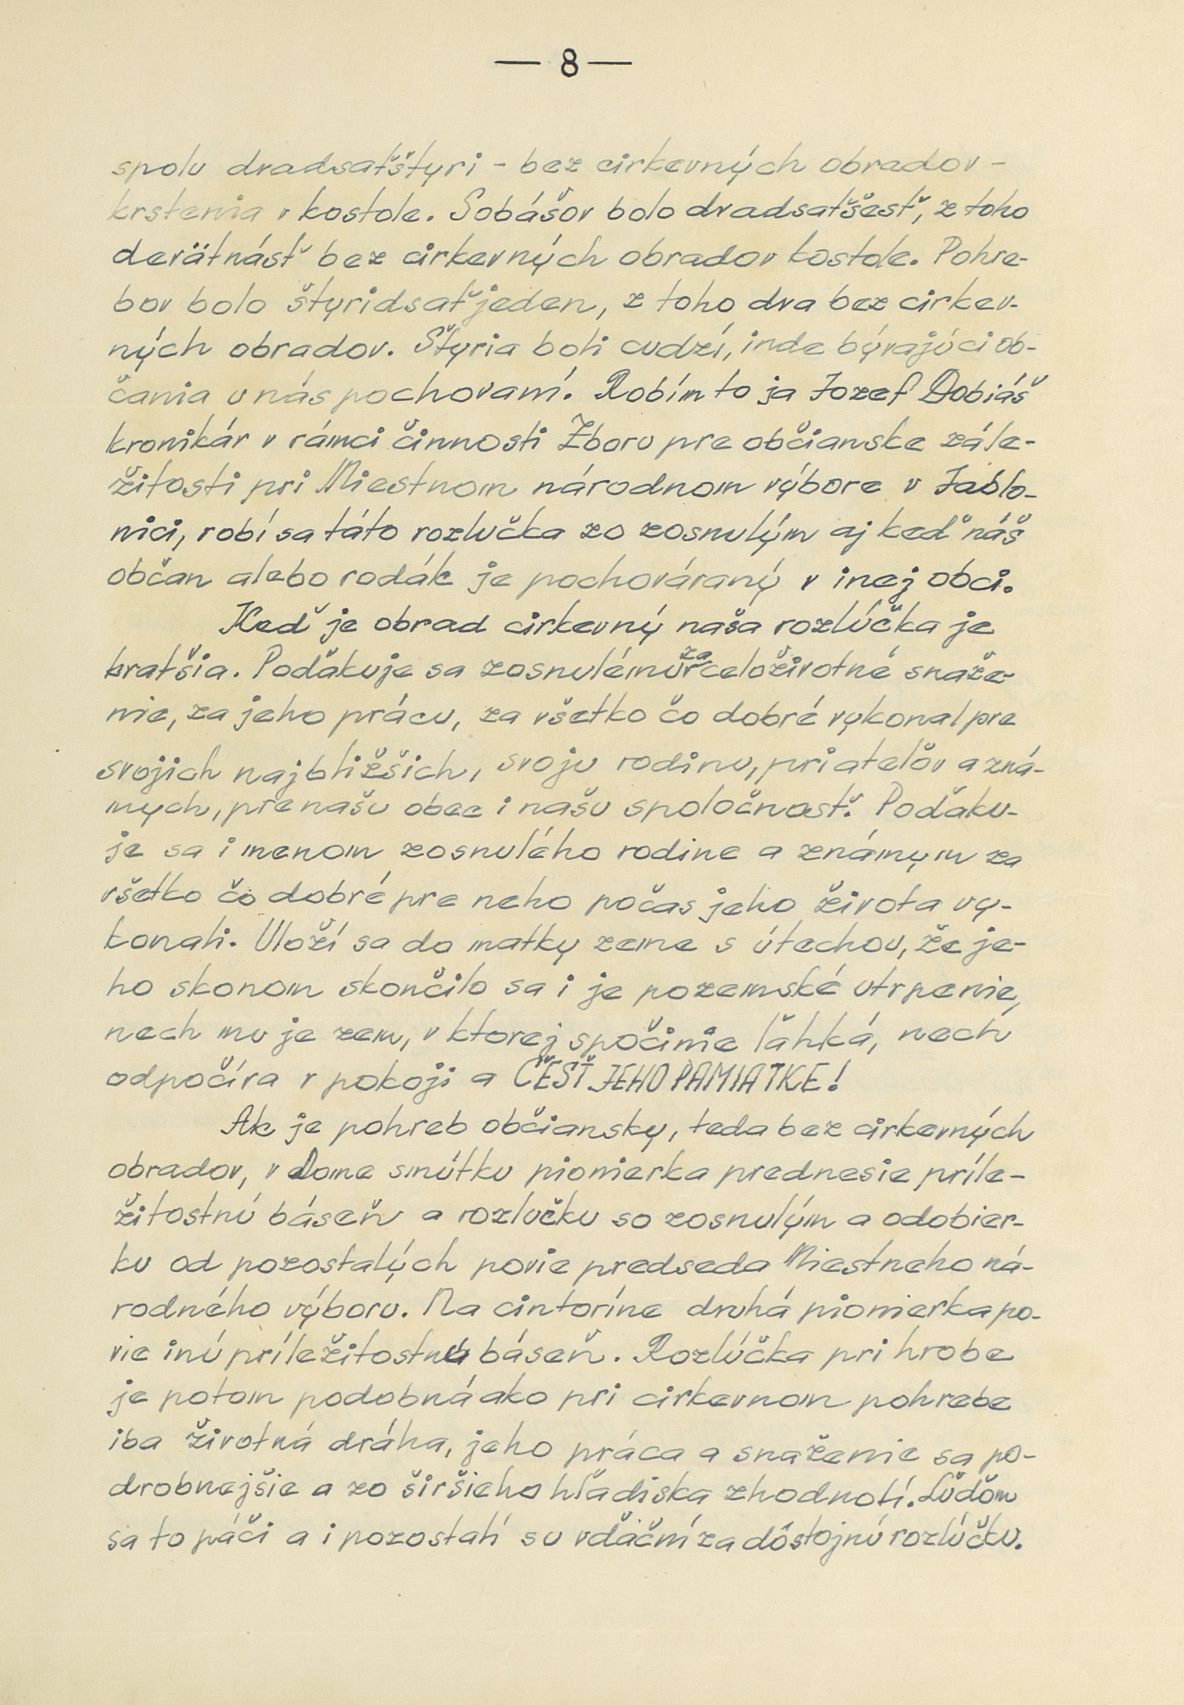 — 8 —
spolu dvadsaťštyri - bez cirkevných obradov -
krstenia v kostole. Sobášov bolo dvadsaťšesť, z toho
devätnásť bez cirkevných obradov kostole. Pohre-
bov bolo štyridsaťjeden, z toho dva bez cirkev-
ných obradov. Štyria boli cudzí, inde bývajúci ob-
čania u nás pochovaní. Robím to ja Jozef Dobiáš
kronikár v rámci činnosti Zboru pre občianske zále-
žitosti pri Miestnom národnom výbore v Jablo-
nici, robí sa táto rozlučka zo zosnulým aj keď náš
občan alebo rodák je pochováraný v inej obci.
Keď je obrad cirkevný naša rozlúčka je
kratšia. Poďakuje sa zosnulému za celoživotné snaže-
nie, za jeho prácu, za všetko čo dobré vykonal pre
svojich najbližších, svoju rodinu, priateľov a zná-
mych, pre našu obec i našu spoločnosť. Poďaku-
je sa i menom zosnulého rodine a známym za
všetko čo dobré pre neho počas jeho života vy-
konali. Uloží sa do matky zeme s útechou, že je-
ho skonom skončilo sa i je pozemské utrpenie,
nech mu je zem, v ktorej spočinie ľahká, nech
odpočíva v pokoji a ČESŤ JEHO PAMIATKE!
Ak je pohreb občiansky, teda bez cirkevných
obradov, v Dome smútku pionierka prednesie príle-
žitostnú báseň a rozlučku so zosnulým a odobier-
ku od pozostalých povie predseda Miestneho ná-
rodného výboru. Na cintoríne druhá pionierka po-
vie inú príležitostnú báseň. Rozlúčka pri hrobe
je potom podobná ako pri cirkevnom pohrebe
iba životná dráha, jeho práca a snaženie sa po-
drobnejšie a zo širšieho hľadiska zhodnotí. Ľuďom
sa to páči a i pozostalí su vďační za dôstojnú rozlúčku.